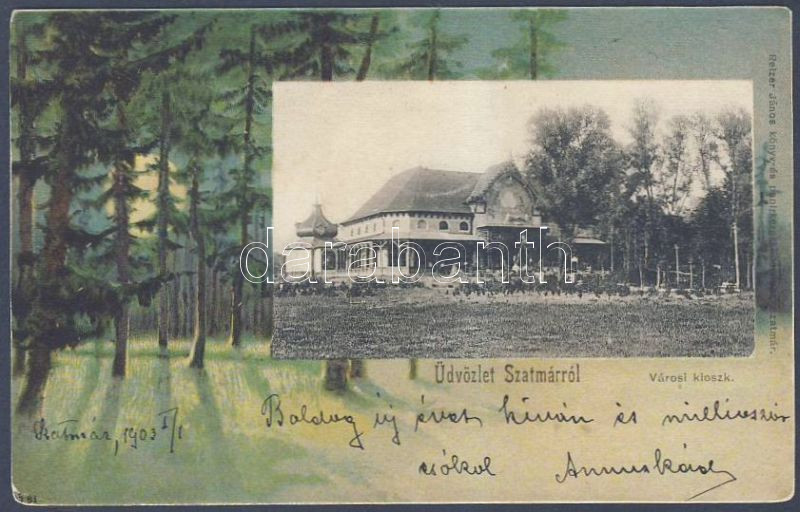 darabanth
Üdvözlet Szatmárról
Városi kioszk.
Szatmár, 1903 I/1
Boldog új évet kíván és milliószor
csókol Annuskád
Reizer János könyv és
Szatmár.